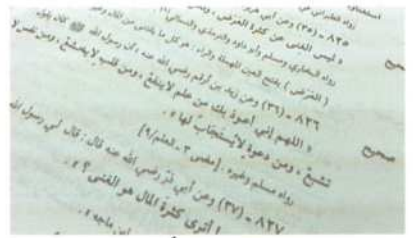 رواه
٨٢٥ - (٣٥) وعن أبي هريرة
« ليس الغنى عن كثرة العرض، ولكن
رواه البخاري ومسلم وأبو داود والترمذي والنسائي.
( العرض ) بفتح العين المهملة والراء : هو كل ما يقتنى من المال وغيره
صحيح ٨٢٦ - (٣٦) وعن زيد بن أرقم رضي الله عنه؛ أن رسول الله ﷺ كان يقول
« اللهم إني أعوذ بك من علم لا ينفع، ومن قلب لا يخشع، ومن نفس لا
تشبع، ومن دعوة لا يستجاب لها ».
رواه مسلم وغيره. [مضى ٣- العلم/٩]
صحيح ٨٢٧ - (٣٧) وعن أبي ذر رضي الله عنه قال: قال لي رسول الله
« أترى كثرة المال هو الغنى؟ ».
ابن ماجه